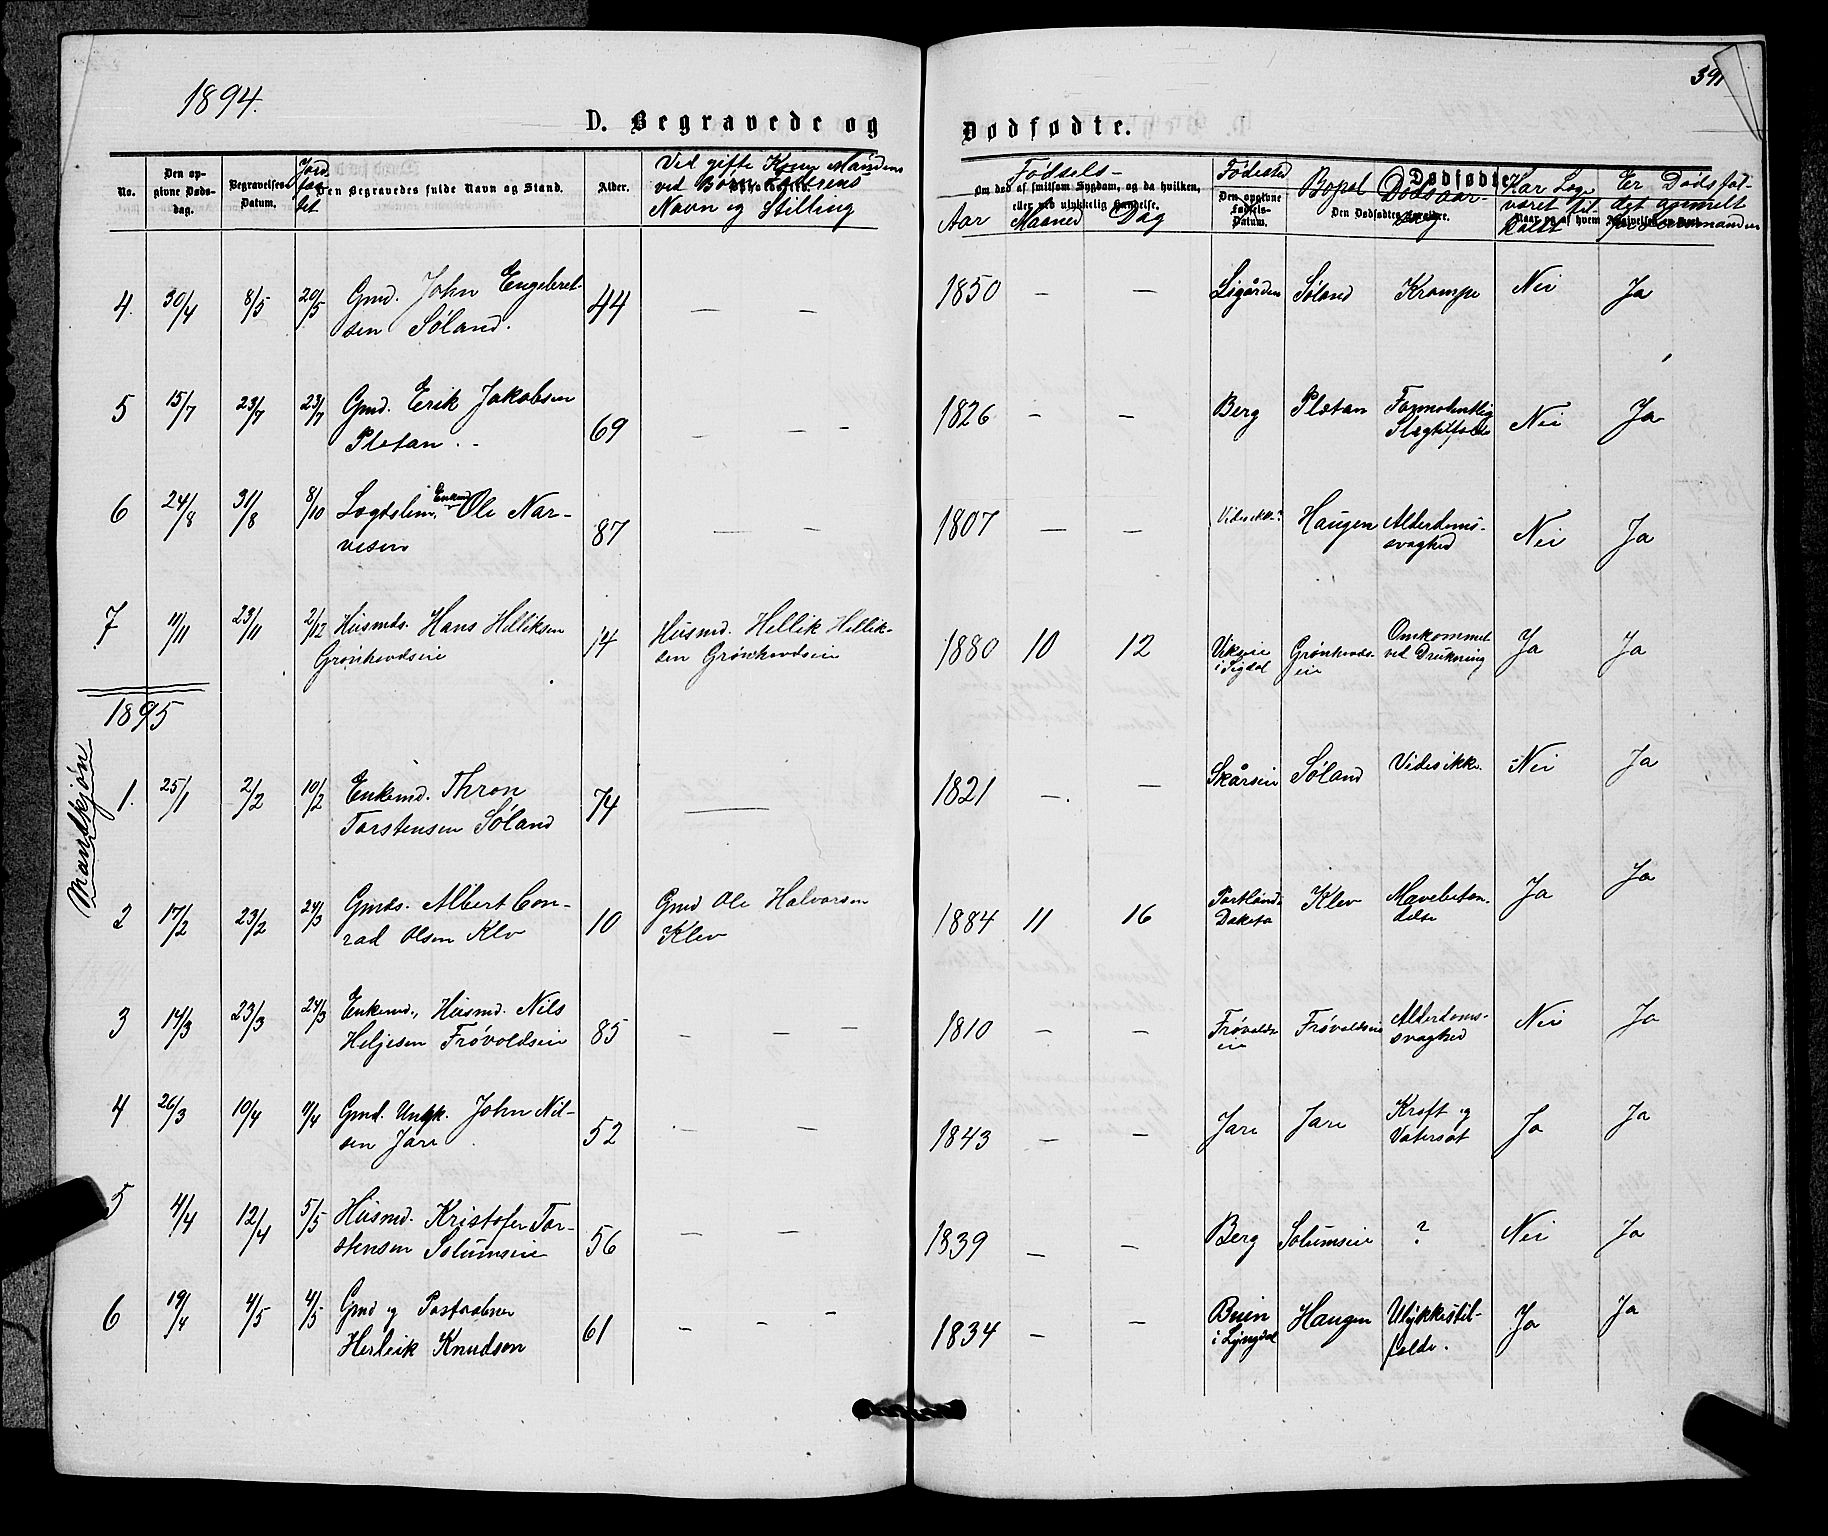 1894.
391
D. Begravede og Dødfødte.
No.
Den opgivne Dødsdag.
Begravelses Datum.
Jordfæstet
Den Begravedes fulde Navn og Stand.
Alder.
Ved gifte Koner Mandens
ved Børn Faderens
Navn og Stilling
Fødsels-
Om død af smitsom Sygdom, og da hvilken,
eller ved ulykkelig Hændelse.
Aar Maaned Dag
Fødested
Den opgivne Fødsels-Datum.
Bopæl
Dødfødte.
Dødsaar-
Den Dødfødtes Forældre.
Har Læge
været til-
kaldt
Er Dødsfal-
det anmelt
4. 30/4 8/5 20/5 Gmd. John Engebret-
sen Søland. 44 — — 1850 — — Ligården Søland Krampe Nei Ja
5 15/7 23/7 23/7 Gmd. Erik Jakobsen
Pletan. 69 — — — 1826 — — Berg Pletan Formodentlig
Slagtilfælde Nei Ja
6 24/8 31/8 8/10 Lægdslem, Enkmd Ole Nar-
vesen 87 — — 1807 — — Vides ikke? Haugen Alderdoms-
svaghed Nei Ja
7 11/11 23/11 2/12 Husmds. Hans Helliksen
Grønhovdseie 14 Husmd. Hellik Hellik-
sen Grønhovdseie 1880 10 12 Vikseie
i Sigdal Grønhovds-
eie Omkommet
ved Drukning Ja Ja
1895
Mandkjøn
1. 25/1 2/2 10/2 Enkemd. Thron
Torstensen Søland 74 — 1821 — — Skårseie Søland Vides ikke. Nei Ja
2 17/2 23/2 24/3 Gmds. Albert Con-
rad Olsen Klev 10 Gmd Ole Halvorsen
Klev 1884 11 16 Portland
Dakota Klev Mavebeten-
delse Ja Ja
3 14/3 23/3 24/3 Enkemd., Husmd. Nils
Heljesen Frøvoldseie 85 — — — 1810 — — Frøvolds-
eie Frøvoldseie Alderdoms-
svaghed Nei Ja
4 26/3 10/4 11/4 Gmd. Ungk. John Nil-
sen Jare 52 — — 1843 — — Jare Jare Kræft og
Vatersot Ja Ja
5 4/4 12/4 5/5 Husmd. Kristofer Tor-
stensen Solumseie 56 — — 1839 — — Berg Solumseie ? Nei Ja
6 19/4 4/5 4/5 Gmd og Postaabner
Herleik Knudsen 61 — — — 1834 — — Buin
i Lyngdal Haugen Ulykkestil-
fælde. Ja Ja